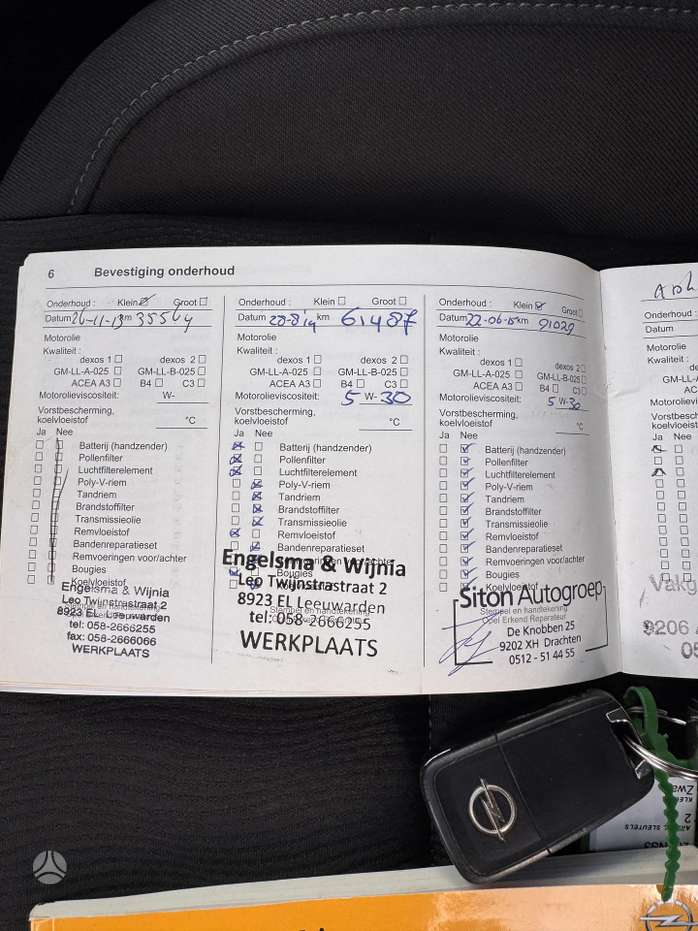 6 Bevestiging onderhoud
Onderhoud : Klein Groot
Datum 26-11-13 km 35564
Motorolie
Kwaliteit :
dexos 1 dexos 2
GM-LL-A-025 GM-LL-B-025
ACEA A3 B4 C3
Motorolieviscositeit: W-
Vorstbescherming,
koelvloeistof °C
Ja Nee
Batterij (handzender)
Pollenfilter
Luchtfilterelement
Poly-V-riem
Tandriem
Brandstoffilter
Transmissieolie
Remvloeistof
Bandenreparatieset
Remvoeringen voor/achter
Bougies
Koelvloeistof
Engelsma & Wijnia
Leo Twijnstrastraat 2
8923 EL Leeuwarden
tel: 058-2666255
fax: 058-2666066
WERKPLAATS
Onderhoud : Klein Groot
Datum 28-8-14 km 61487
Motorolie
Kwaliteit :
dexos 1 dexos 2
GM-LL-A-025 GM-LL-B-025
ACEA A3 B4 C3
Motorolieviscositeit: 5 W-30
Vorstbescherming,
koelvloeistof °C
Ja Nee
Batterij (handzender)
Pollenfilter
Luchtfilterelement
Poly-V-riem
Tandriem
Brandstoffilter
Transmissieolie
Remvloeistof
Bandenreparatieset
Bougies
Engelsma & Wijnia
Leo Twijnstrastraat 2
8923 EL Leeuwarden
Stempel en handtekening
tel: 058-2666255
WERKPLAATS
Onderhoud : Klein Groot
Datum 22-06-15 km 91029
Motorolie
Kwaliteit :
dexos 1 dexos 2
GM-LL-A-025 GM-LL-B-025
ACEA A3 B4 C3
Motorolieviscositeit: 5 W-30
Vorstbescherming,
koelvloeistof °C
Ja Nee
Batterij (handzender)
Pollenfilter
Luchtfilterelement
Poly-V-riem
Tandriem
Brandstoffilter
Transmissieolie
Remvloeistof
Bandenreparatieset
Remvoeringen voor/achter
Bougies
Koelvloeistof
Siton Autogroep
Stempel en handtekening
Opel Erkend Reparateur
De Knobben 25
9202 XH Drachten
0512 - 51 44 55
Onderhoud :
Datum
Motorolie
Kwaliteit :
Motorolievi
Vorstbesc
koelvloeist
Ja Nee
Vakg
9206
2
SLEUTELS